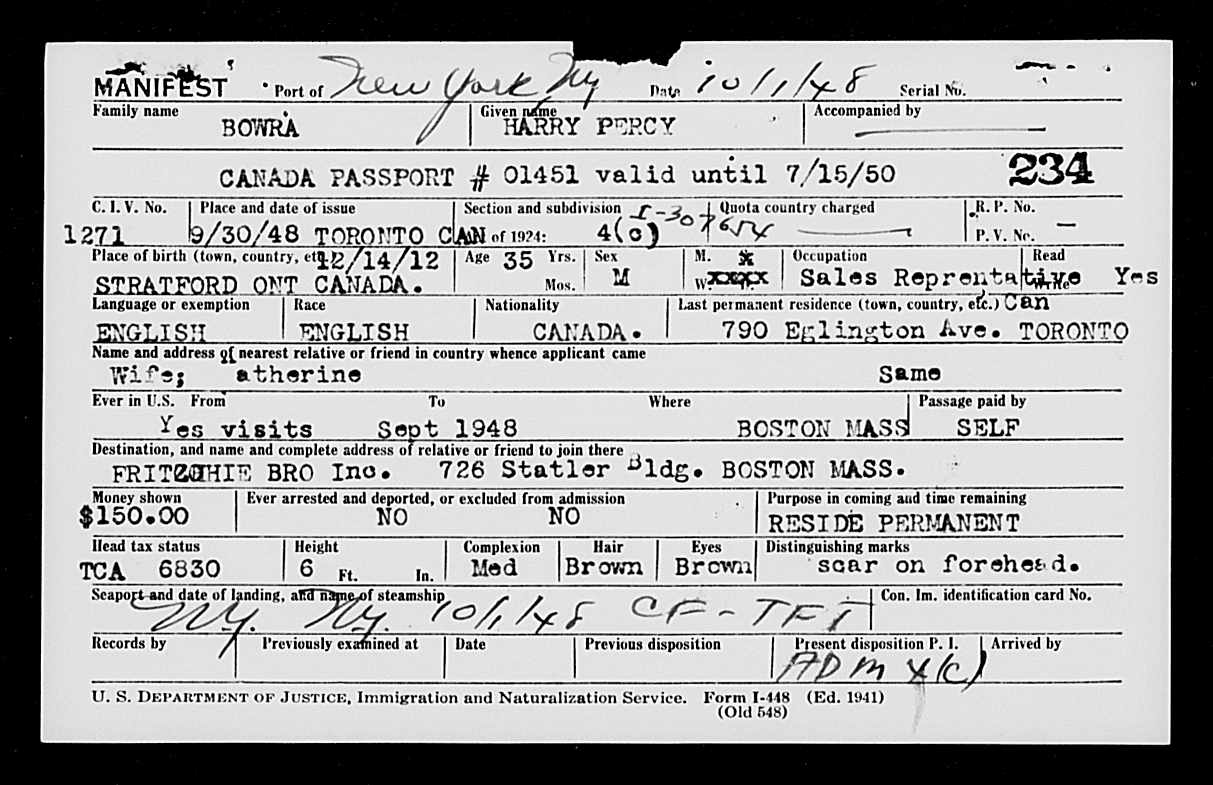 MANIFEST Port of New York, Ny Date 10/1/48 Serial No.
Family name Given name Accompanied by
BOWRA HARRY PERCY
CANADA PASSPORT # 01451 valid until 7/15/50 234
C. I. V. No. Place and date of issue Section and subdivision Quota country charged R. P. No.
1271 9/30/48 TORONTO CAN of 1924: 4(c) I-307654 P. V. No.
Place of birth (town, country, etc.) 12/14/12 Age 35 Yrs. Sex M. X Occupation Read
STRATFORD ONT CANADA. Mos. M W XXXX Sales Reprentative Write Yes
Language or exemption Race Nationality Last permanent residence (town, country, etc.) Can
ENGLISH ENGLISH CANADA. 790 Eglington Ave. TORONTO
Name and address of nearest relative or friend in country whence applicant came
Wife; atherine Same
Ever in U.S. From To Where Passage paid by
Yes visits Sept 1948 BOSTON MASS SELF
Destination, and name and complete address of relative or friend to join there
BRO Inc. 726 Statler Bldg. BOSTON MASS.
Money shown Ever arrested and deported, or excluded from admission Purpose in coming and time remaining
$150.00 NO NO RESIDE PERMANENT
Head tax status Height Complexion Hair Eyes Distinguishing marks
TCA 6830 6 Ft. In. Med Brown Brown scar on forehead.
Seaport and date of landing, and name of steamship Con. Im. identification card No.
Ny. Ny. 10/1/48 CF-TFT
Records by Previously examined at Date Previous disposition Present disposition P. I. Arrived by
ADM 4(c)
U. S. DEPARTMENT OF JUSTICE, Immigration and Naturalization Service. Form I-448 (Ed. 1941)
(Old 548)